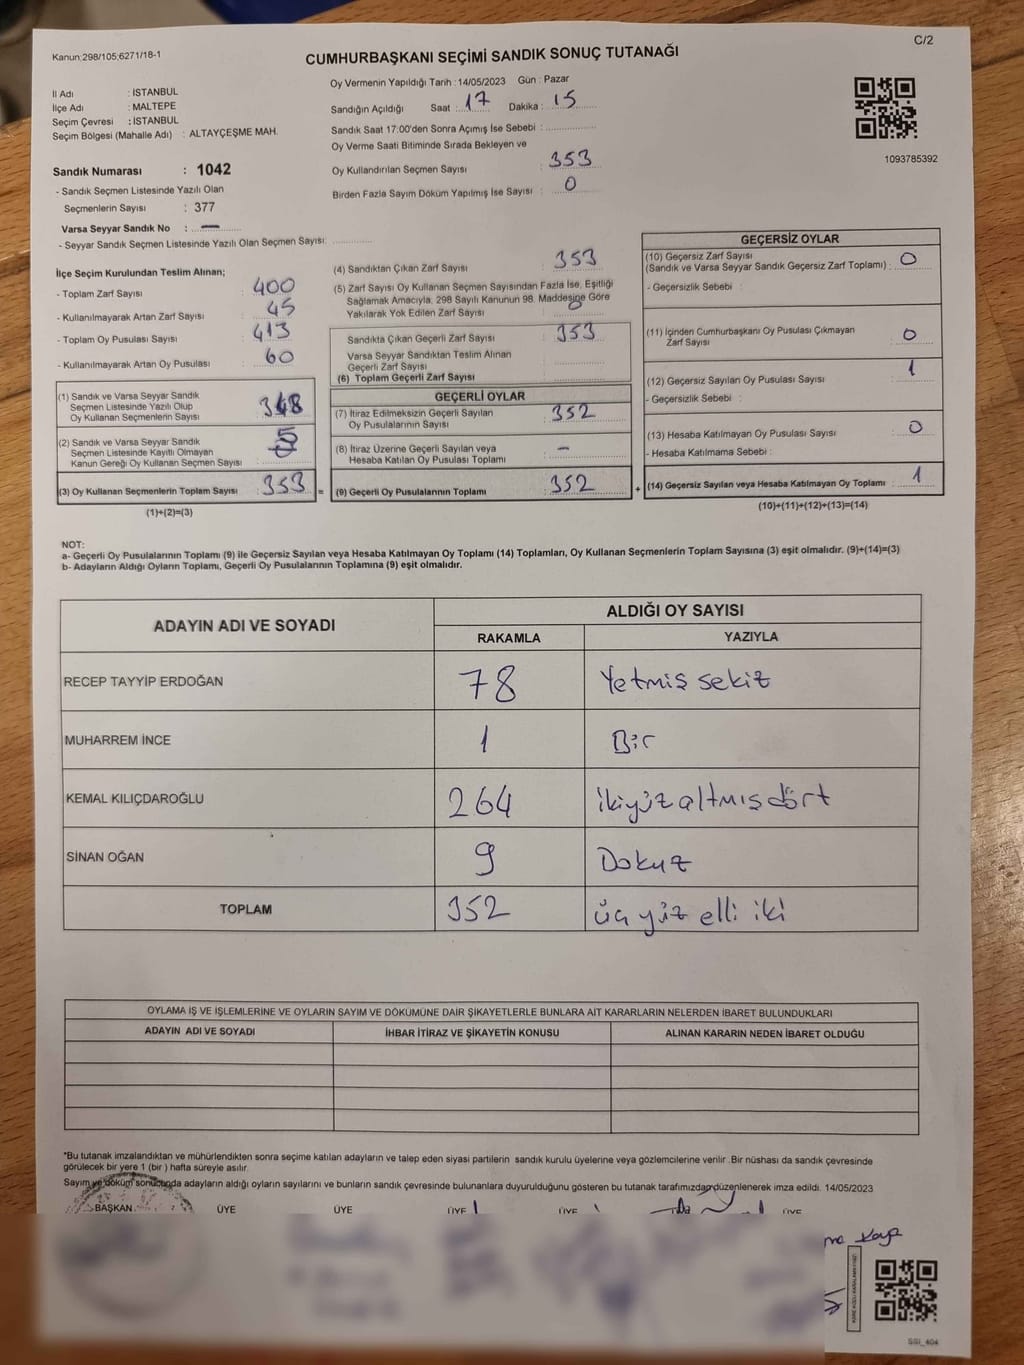 Kanun:298/105;6271/18-1
C/2
CUMHURBAŞKANI SEÇİMİ SANDIK SONUÇ TUTANAĞI
İl Adı : İSTANBUL
İlçe Adı : MALTEPE
Seçim Çevresi : İSTANBUL
Seçim Bölgesi (Mahalle Adı) : ALTAYÇEŞME MAH.
Oy Vermenin Yapıldığı Tarih : 14/05/2023 Gün : Pazar
Sandığın Açıldığı Saat : 17 Dakika : 15
Sandık Saat 17:00'den Sonra Açımış İse Sebebi :
Oy Verme Saati Bitiminde Sırada Bekleyen ve
Oy Kullandırılan Seçmen Sayısı : 353
Birden Fazla Sayım Döküm Yapılmış İse Sayısı : 0
1093785392
Sandık Numarası : 1042
- Sandık Seçmen Listesinde Yazılı Olan
Seçmenlerin Sayısı : 377
Varsa Seyyar Sandık No : —
- Seyyar Sandık Seçmen Listesinde Yazılı Olan Seçmen Sayısı:
İlçe Seçim Kurulundan Teslim Alınan;
- Toplam Zarf Sayısı : 400
- Kullanılmayarak Artan Zarf Sayısı : 45
- Toplam Oy Pusulası Sayısı : 413
- Kullanılmayarak Artan Oy Pusulası : 60
(1) Sandık ve Varsa Seyyar Sandık
Seçmen Listesinde Yazılı Olup
Oy Kullanan Seçmenlerin Sayısı : 348
(2) Sandık ve Varsa Seyyar Sandık
Seçmen Listesinde Kayıtlı Olmayan
Kanun Gereği Oy Kullanan Seçmen Sayısı : 5
(3) Oy Kullanan Seçmenlerin Toplam Sayısı : 353 =
(1)+(2)=(3)
(4) Sandıktan Çıkan Zarf Sayısı : 353
(5) Zarf Sayısı Oy Kullanan Seçmen Sayısından Fazla İse, Eşitliği
Sağlamak Amacıyla, 298 Sayılı Kanunun 98. Maddesine Göre
Yakılarak Yok Edilen Zarf Sayısı : 0
Sandıkta Çıkan Geçerli Zarf Sayısı : 353
Varsa Seyyar Sandıktan Teslim Alınan
Geçerli Zarf Sayısı :
(6) Toplam Geçerli Zarf Sayısı :
GEÇERLİ OYLAR
(7) İtiraz Edilmeksizin Geçerli Sayılan
Oy Pusulalarının Sayısı : 352
(8) İtiraz Üzerine Geçerli Sayılan veya
Hesaba Katılan Oy Pusulası Toplamı : —
(9) Geçerli Oy Pusulalarının Toplamı : 352 +
GEÇERSİZ OYLAR
(10) Geçersiz Zarf Sayısı
(Sandık ve Varsa Seyyar Sandık Geçersiz Zarf Toplamı) : 0
- Geçersizlik Sebebi :
(11) İçinden Cumhurbaşkanı Oy Pusulası Çıkmayan
Zarf Sayısı : 0
(12) Geçersiz Sayılan Oy Pusulası Sayısı : 1
- Geçersizlik Sebebi :
(13) Hesaba Katılmayan Oy Pusulası Sayısı : 0
- Hesaba Katılmama Sebebi :
(14) Geçersiz Sayılan veya Hesaba Katılmayan Oy Toplamı : 1
(10)+(11)+(12)+(13)=(14)
NOT:
a- Geçerli Oy Pusulalarının Toplamı (9) ile Geçersiz Sayılan veya Hesaba Katılmayan Oy Toplamı (14) Toplamları, Oy Kullanan Seçmenlerin Toplam Sayısına (3) eşit olmalıdır. (9)+(14)=(3)
b- Adayların Aldığı Oyların Toplamı, Geçerli Oy Pusulalarının Toplamına (9) eşit olmalıdır.
ADAYIN ADI VE SOYADI
ALDIĞI OY SAYISI
RAKAMLA YAZIYLA
RECEP TAYYİP ERDOĞAN 78 Yetmiş sekiz
MUHARREM İNCE 1 Bir
KEMAL KILIÇDAROĞLU 264 ikiyüzaltmışdört
SİNAN OĞAN 9 Dokuz
TOPLAM 352 üç yüz elli iki
OYLAMA İŞ VE İŞLEMLERİNE VE OYLARIN SAYIM VE DÖKÜMÜNE DAİR ŞİKAYETLERLE BUNLARA AİT KARARLARIN NELERDEN İBARET BULUNDUKLARI
ADAYIN ADI VE SOYADI İHBAR İTİRAZ VE ŞİKAYETİN KONUSU ALINAN KARARIN NEDEN İBARET OLDUĞU
*Bu tutanak imzalandıktan ve mühürlendikten sonra seçime katılan adayların ve talep eden siyasi partilerin sandık kurulu üyelerine veya gözlemcilerine verilir .Bir nüshası da sandık çevresinde
görülecek bir yere 1 (bir ) hafta süreyle asılır.
Sayım ve döküm sonucunda adayların aldığı oyların sayılarını ve bunların sandık çevresinde bulunanlara duyurulduğunu gösteren bu tutanak tarafımızdan düzenlenerek imza edildi. 14/05/2023
BAŞKAN ÜYE ÜYE ÜYE ÜYE ÜYE
Kaya
SSI_404